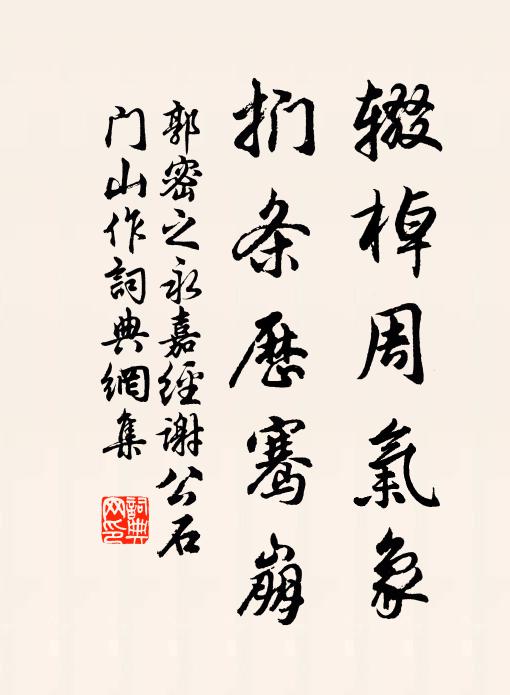 辍棹周氣象
捫条歷騫崩
郭密之永嘉經谢公石
门山作詞典網集
詞典网印